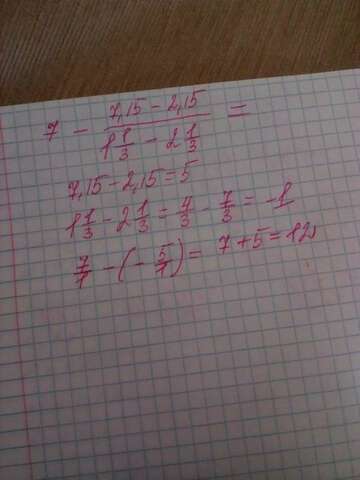 7 - (7,15 - 2,15)/(1 1/3 - 2 1/3) =
7,15 - 2,15 = 5
1 1/3 - 2 1/3 = 4/3 - 7/3 = -1
7/1 - (- 5/1) = 7 + 5 = 12